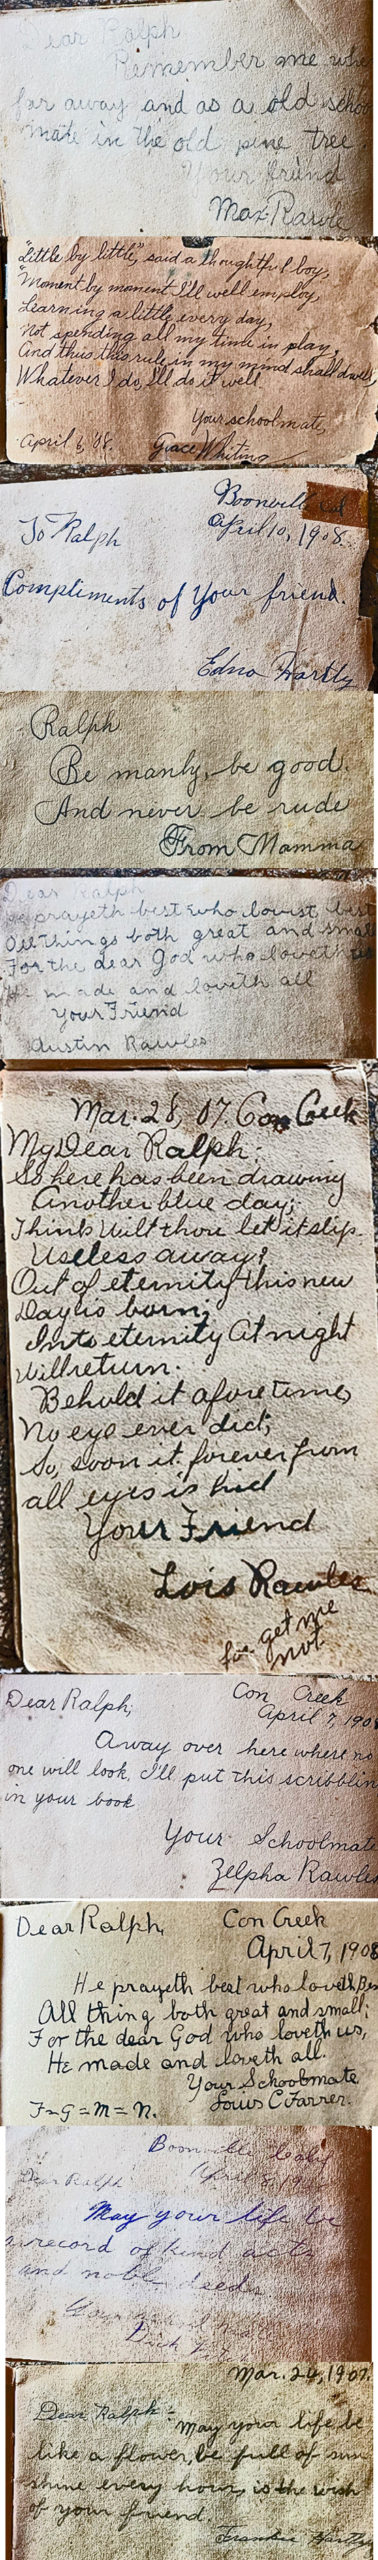 Dear Ralph
Remember me whe
far away and as a old schoo
mate in the old pine tree
Your friend
Max Rawle
"Little by little," said a thoughtful boy,
"Moment by moment I'll well employ,
Learning a little every day,
Not spending all my time in play,
And thus this rule in my mind shall dwell,
Whatever I do, I'll do it well.
Your schoolmate,
April 6, '08. Grace Whiting
Boonville Cal
April 10, 1908.
To Ralph
Compliments of Your friend.
Edna Hartly
Ralph
Be manly, be good.
And never be rude
From Mamma
Dear Ralph
He prayeth best who lovist best
All things both great and small
For the dear God who loveth us
He made and loveth all
Your Friend
Austin Rawles
Mar. 28, 07. Con Creek
My Dear Ralph:
So here has been drawing
Another blue day;
Think wilt thou let it slip
Useless away?
Out of eternity this new
Day is born;
Into eternity At night
Will return.
Behold it afore time,
No eye ever did;
So, soon it forever from
all eyes is hid
Your Friend
Lois Rawles
for get me
not
Dear Ralph, Con Creek
April 7, 190
Away over here where no
one will look, I'll put this scribblin
in your book
Your Schoolmate
Zelpha Rawles
Dear Ralph, Con Creek
April 7, 1908
He prayeth best who loveth Bes
All thing both great and small;
For the dear God who loveth us,
He made and loveth all.
Your Schoolmate
F=G=M=N. Louis C Farrer.
April
Dear Ralph
May your life be
a record of kind acts
and noble deeds
Mar. 24, 1907.
Dear Ralph:
May your life be
like a flower, be full of sun
shine every hour, is the wish
of your friend.
Frankie Hartly